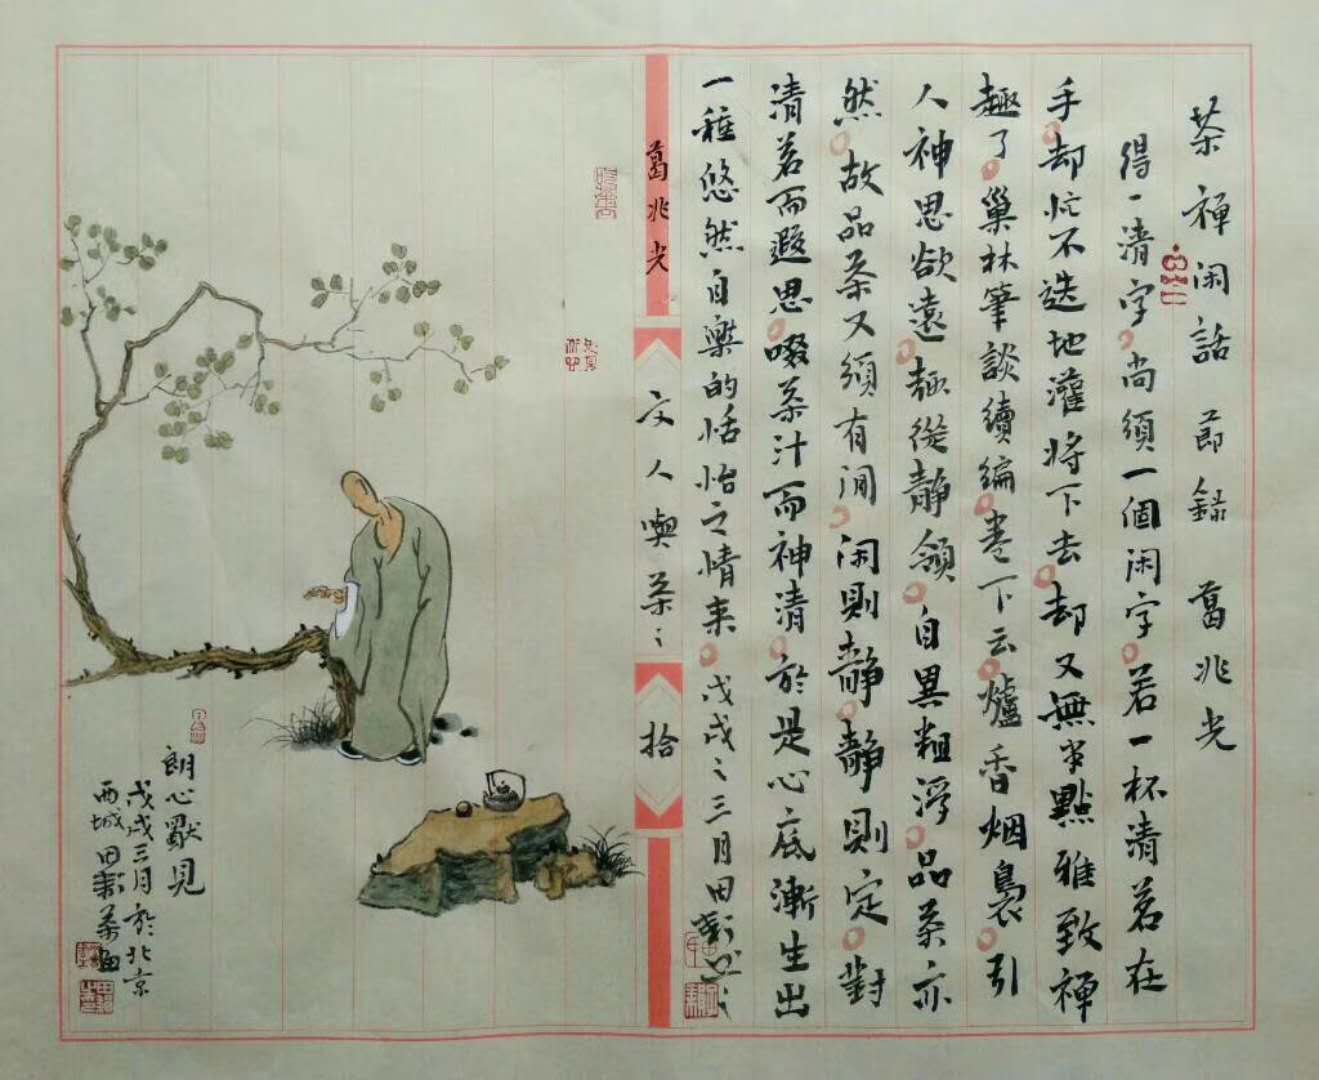 茶禅闲話 節録 葛兆光
得一清字尚須一個闲字若一杯清茗在
手却忙不迭地灌将下去却又無半點雅致禅
趣了巢林筆談續编卷下云爐香烟裊引
人神思欲遠趣從静領自異粗浮品茶亦
然故品茶又須有闲闲則静静則定對
清茗而遐思啜茶汁而神清於是心底漸生出
一種悠然自樂的恬怡之情来戊戌之三月田
葛兆光
文人喫茶
拾
朗心獸見
戊戌三月於北京
西城田